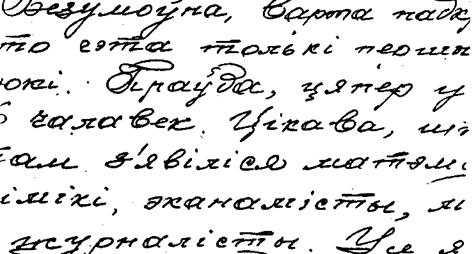 Безумоўна, варта падк
то гэта толькі першы
рокі. Праўда, цяпер у
чалавек. Цікава, шт
там з'явіліся матэмі
імікі, эканамісты, м
журналісты. Ці я